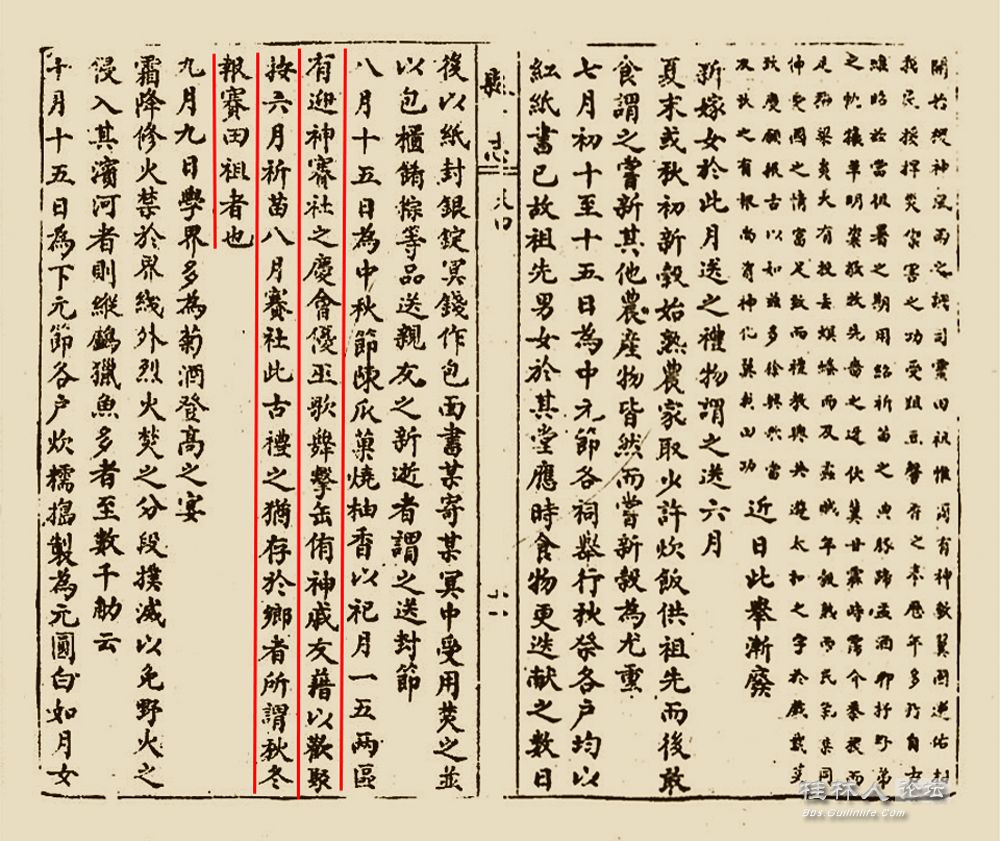 我民授捍災禦害之功受俎豆馨香之奉歷年多乃自古
當伋暑之期用紹祈苗之典豚蹄盂酒聊抒野
之忱草明粢敬先嗇之迎伏冀甘霖時霈介黍稷而
足稻粱炎火有投去螟螣而及蟊賊年穀熟而民氣樂同
仰受國之情富足致而禮教興共遊太和之宇於戲
慶願振古以如茲多徐興歌當
之有報尚有神化
近日此舉漸廢
新嫁女於此月送之禮物謂之送六月
夏末或秋初新穀始熟農家取少許炊飯供祖先而後敢
食謂之嘗新其他農產物皆然而嘗新穀為尤重
七月初十至十五日為中元節各祠舉行秋祭各户均以
紅紙書已故祖先男女於其堂應時食物更迭献之數日
縣志
後以紙封銀錠冥錢作包面書某寄某冥中受用焚之並
以包櫃餚粽等品送親友之新逝者謂之送封節
八月十五日為中秋節陳瓜菓燒柚香以祀月一五两區
有迎神賽社之慶會優巫歌舞擊缶侑神戚友藉以歡聚
按六月祈苗八月賽社此古禮之猶存於鄉者所謂秋冬
報賽田祖者也
九月九日學界多為菊酒登高之宴
霜降修火禁於界綫外烈火焚之分段撲滅以免野火之
侵入其濱河者則縱鸕獵魚多者至數千觔云
十月十五日為下元節各户炊糯搗製為元圓白如月女
桂林人论坛
Bbs.Guilinlife.Com